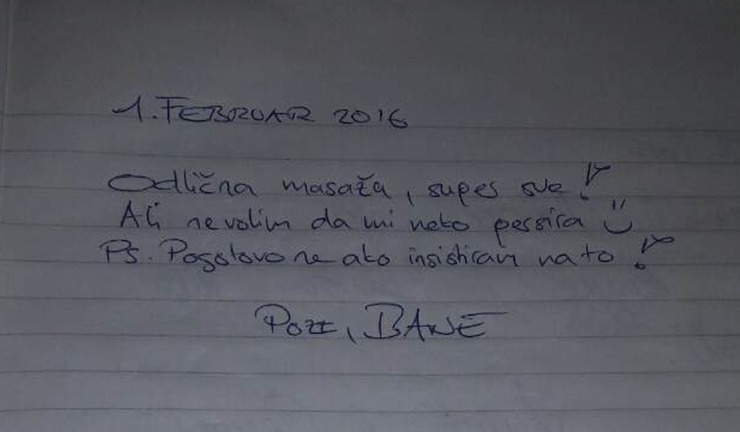 1. FEBRUAR 2016
Odlična masaža, super sve!
Ali ne volim da mi neko persira :)
Ps. Pogotovo ne ako insistiram na to!
Pozz, BANE